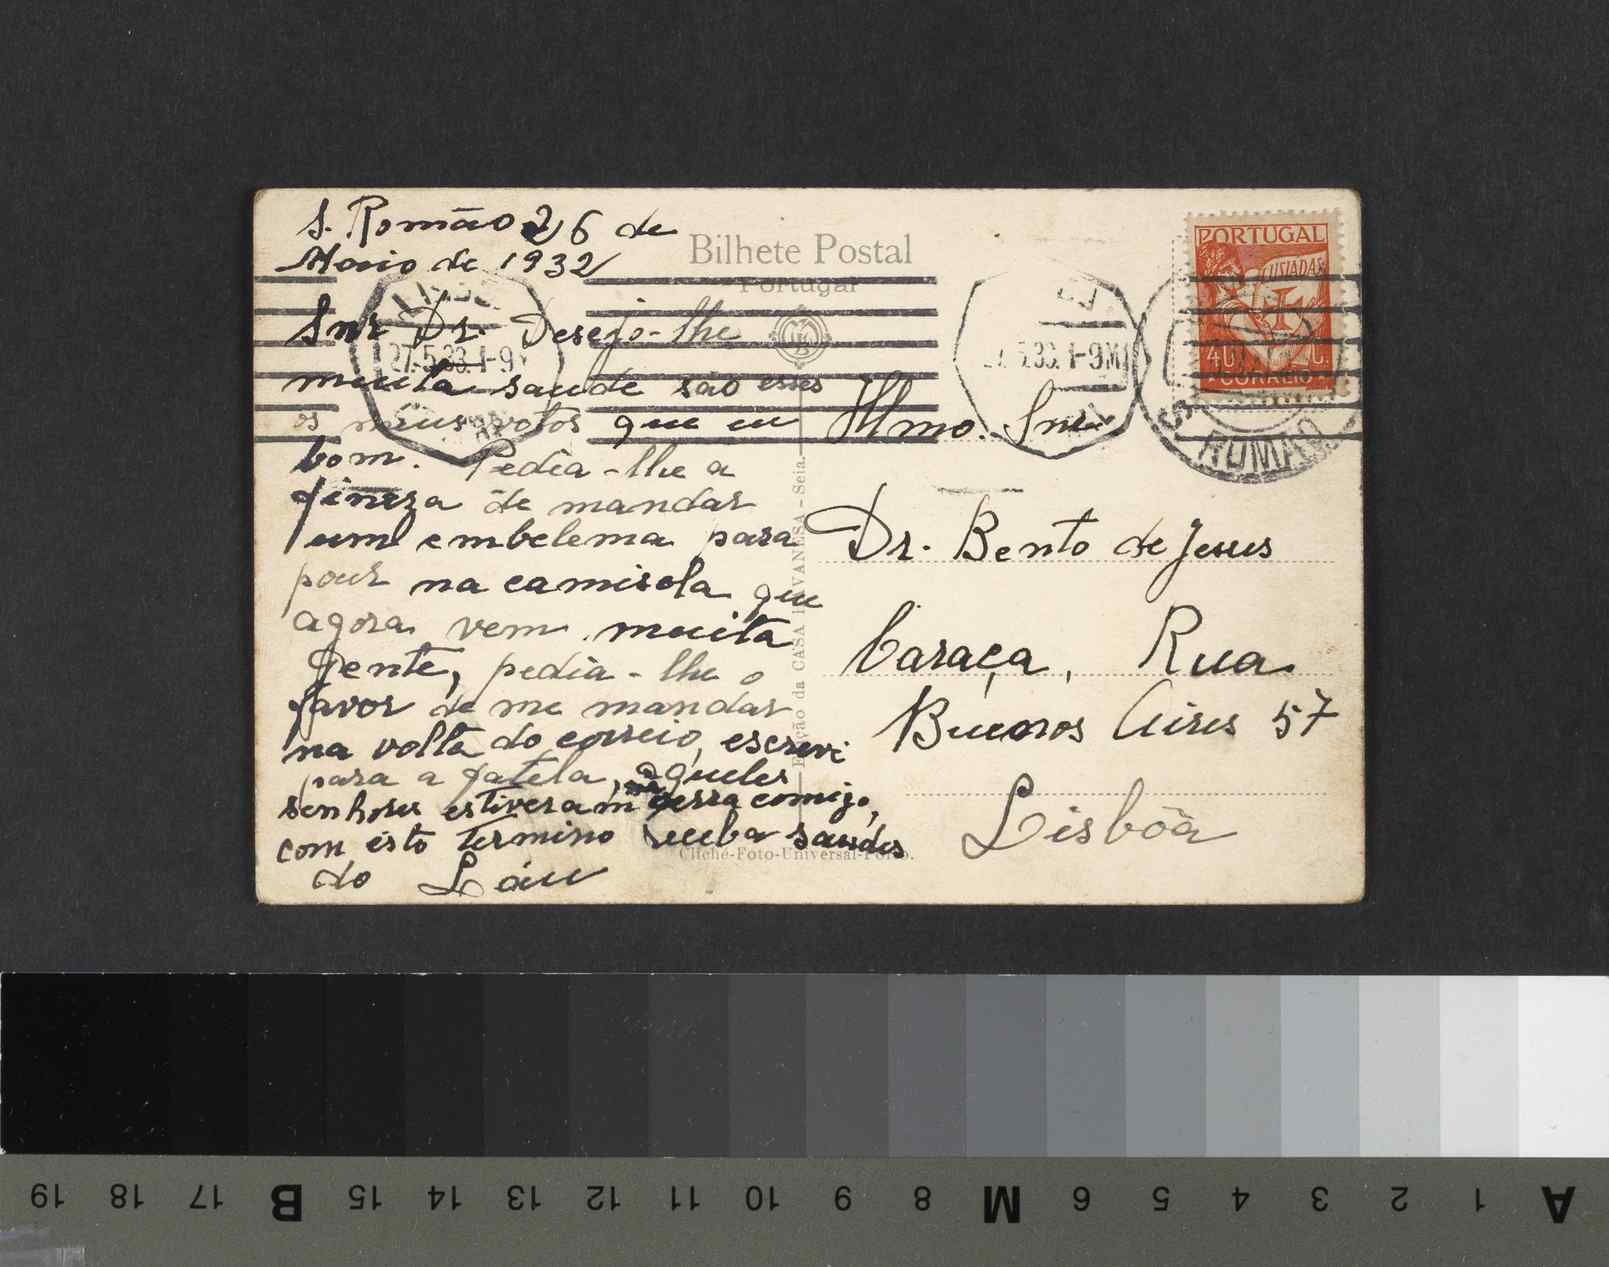 S. Romão 26 de
Maio de 1932
Snr Dr. Desejo-lhe
muita saude são esses
os meus votos que eu
bom. Pedia-lhe a
fineza de mandar
um embelema para
pour na camisola que
agora vem muita
gente, pedia-lhe o
favor de me mandar
na volta do correio, escrevi
para a patela, aqueles
senhores estiveram na serra comigo,
com isto termino receba saudes
do Láu
Bilhete Postal
Portugal
Edição da CASA HAVANESA - Seia.
Cliché-Foto-Universal-Porto.
PORTUGAL
LUSIADAS
40 C.
CORREIO
LISBOA
27.5.33.1-9M
27.5.33.1-9M
S. ROMÃO
Illmo. Snr.
Dr. Bento de Jesus
Caraça, Rua
Buenos Aires 57
Lisbôa
19 18 17 B 15 14 13 12 11 10 9 8 M 6 5 4 3 2 1 A